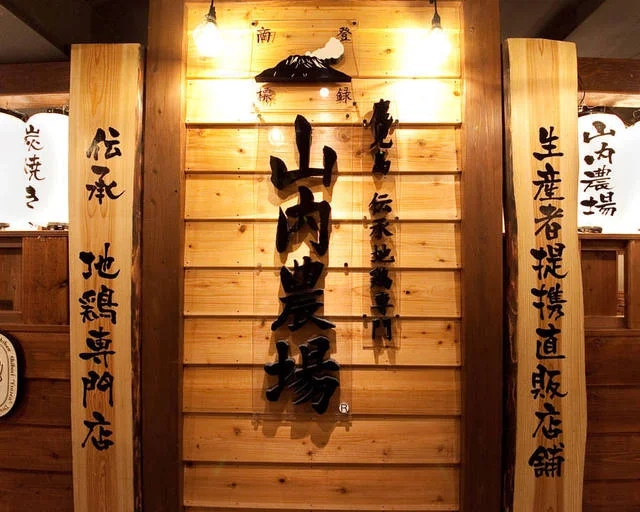 山内農場
生産者提携直販店舗
登録
商標
鹿児島 伝承地鶏専門
山内農場
®
伝承 地鶏専門店
炭焼き、